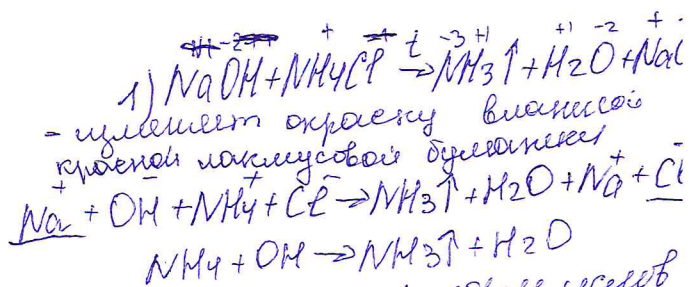 1) NaOH + NH4Cl →t NH3↑ + H2O + NaC
- изменяет окраску влажной
красной лакмусовой бумажки
Na⁺ + OH⁻ + NH4⁺ + Cl⁻ → NH3↑ + H2O + Na⁺ + Cl⁻
NH4 + OH → NH3↑ + H2O